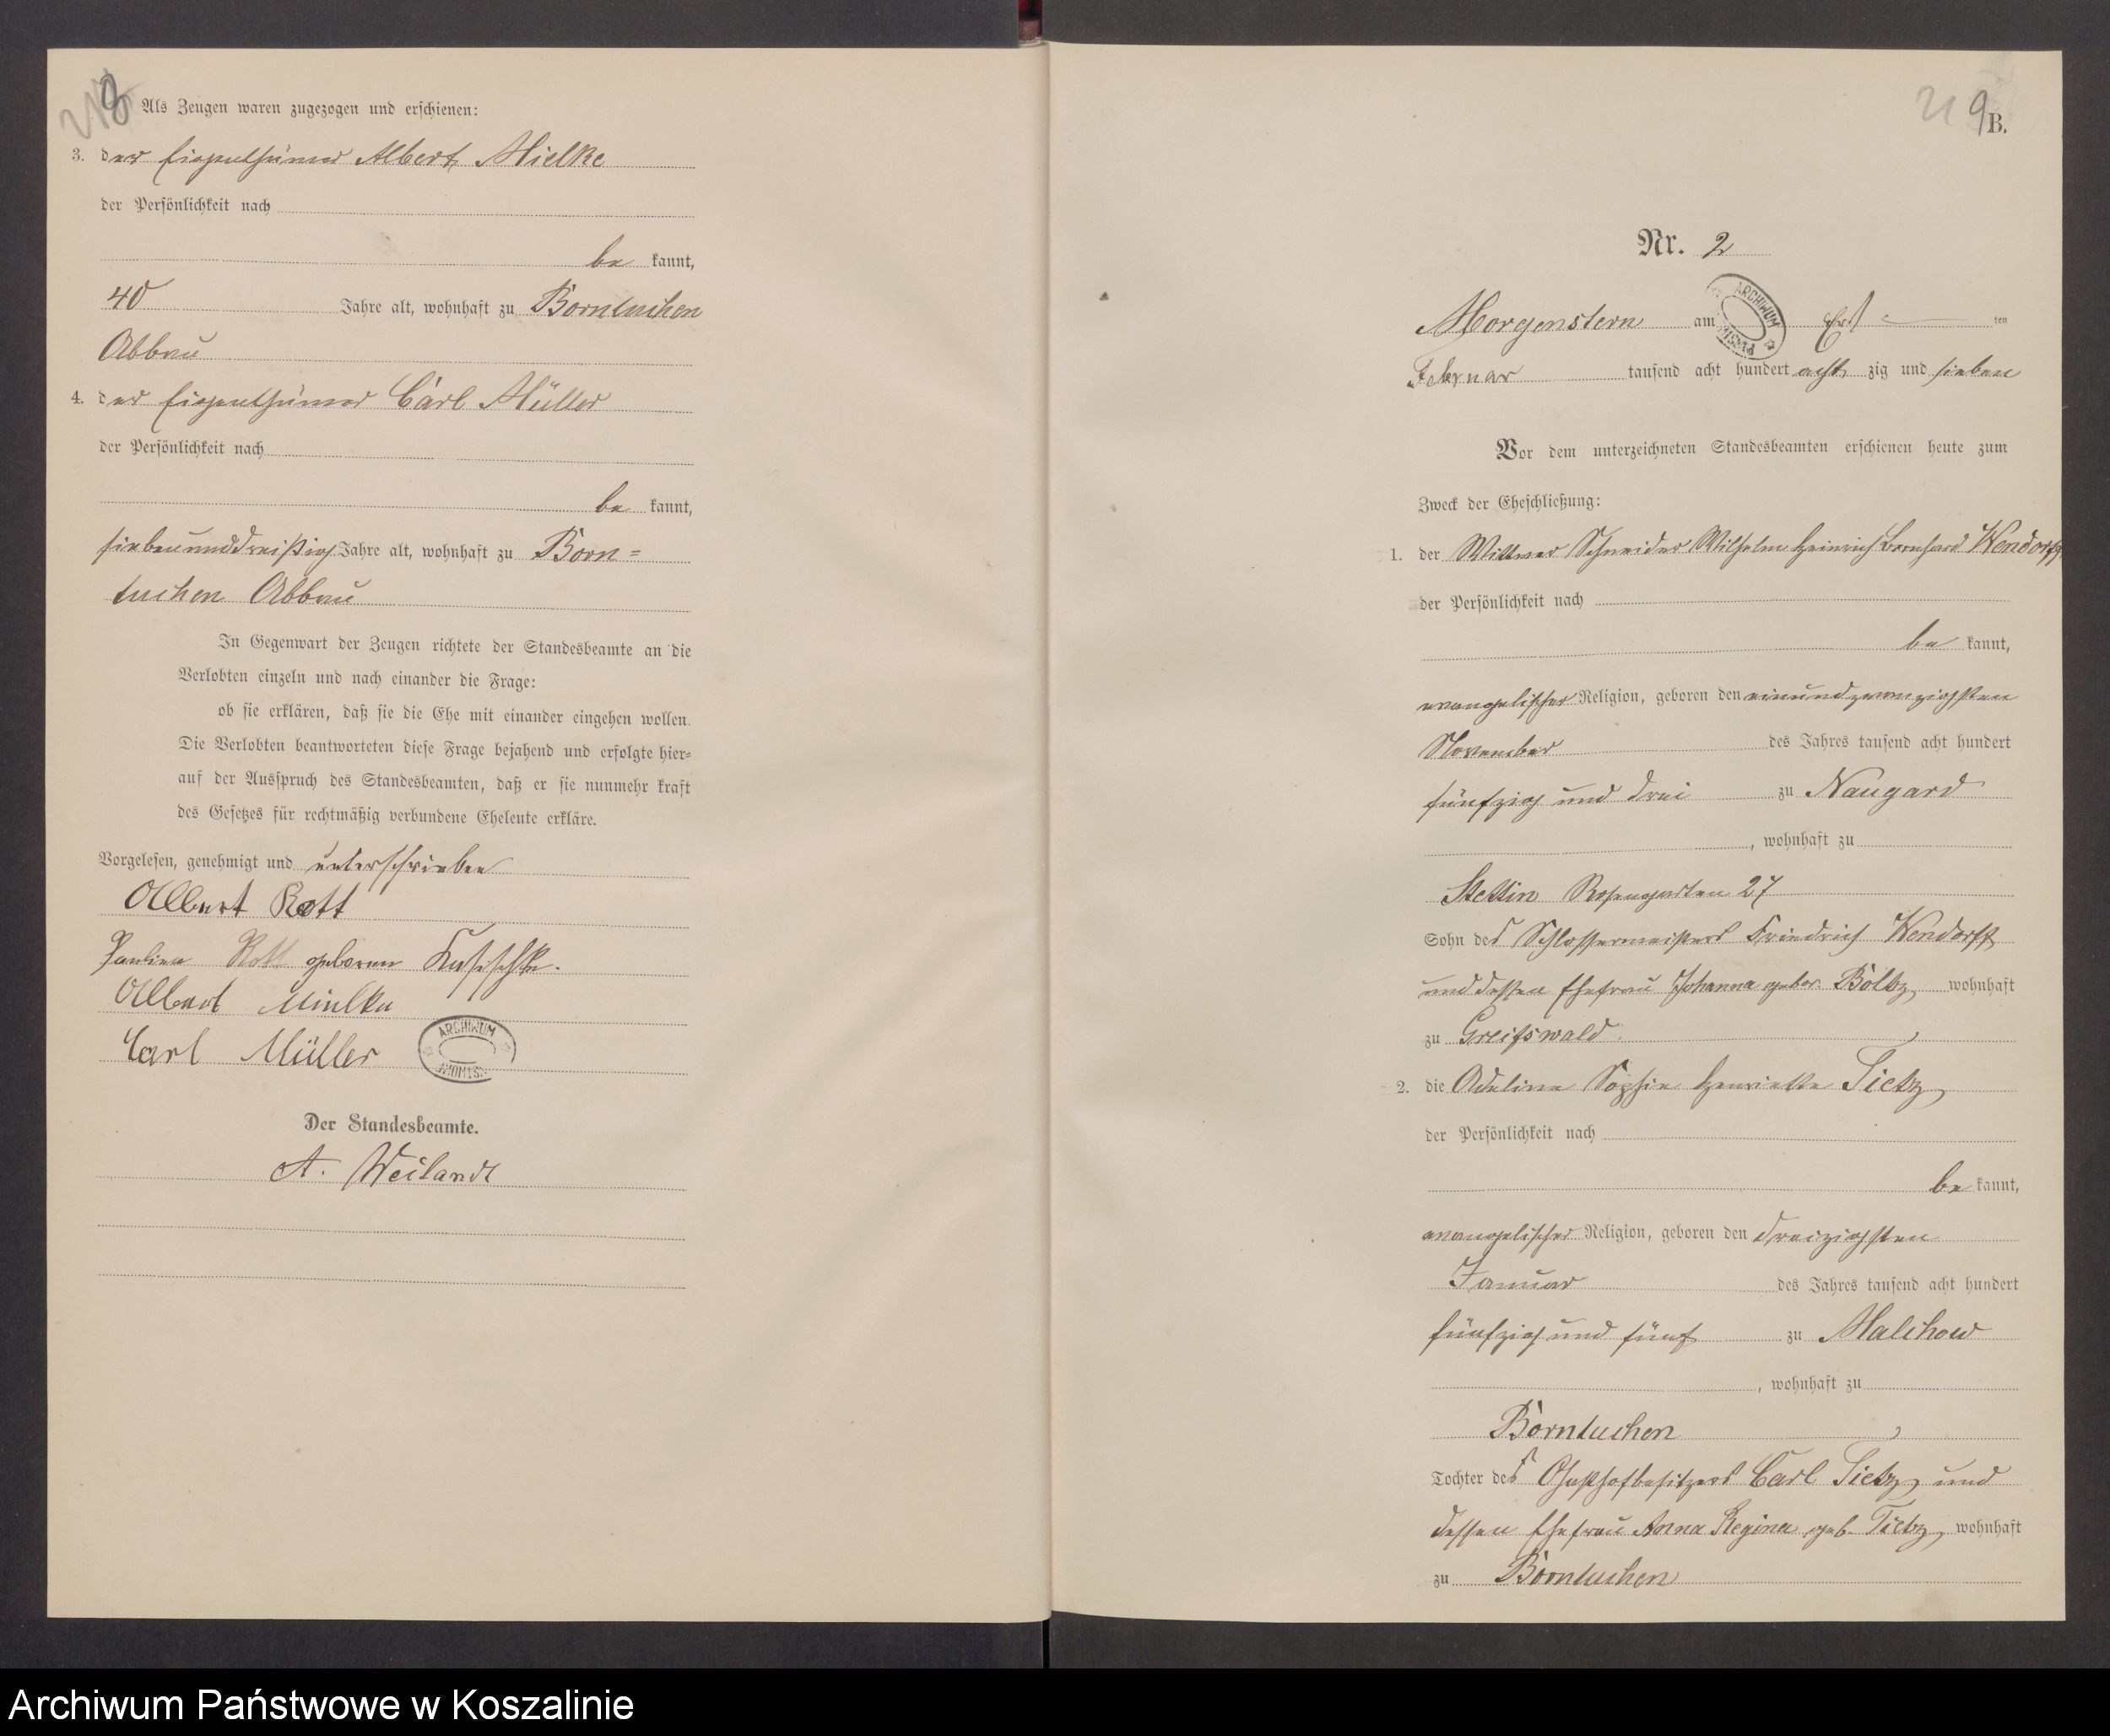 218
Als Zeugen waren zugezogen und erschienen:
3. der Eigenthümer Albert Mielke
der Persönlichkeit nach
be kannt,
40 Jahre alt, wohnhaft zu Borntuchen
Abbau
4. der Eigenthümer Carl Müller
der Persönlichkeit nach
be kannt,
siebenunddreißig Jahre alt, wohnhaft zu Born=
tuchen Abbau
In Gegenwart der Zeugen richtete der Standesbeamte an die
Verlobten einzeln und nach einander die Frage:
ob sie erklären, daß sie die Ehe mit einander eingehen wollen.
Die Verlobten beantworteten diese Frage bejahend und erfolgte hier=
auf der Ausspruch des Standesbeamten, daß er sie nunmehr kraft
des Gesetzes für rechtmäßig verbundene Eheleute erkläre.
Vorgelesen, genehmigt und unterschrieben
Albert Rott
Pauline Rott geboren
Albert Mielke
Carl Müller
ARCHIWUM
Der Standesbeamte.
A. Weilandt
219
B.
Nr. 2
Morgenstern am Erst ten
ARCHIWUM
Februar tausend acht hundert acht zig und sieben
Vor dem unterzeichneten Standesbeamten erschienen heute zum
Zweck der Eheschließung:
1. der Wittwer Schneider Wilhelm Heinrich Bernhard Wendorff
der Persönlichkeit nach
be kannt,
evangelischer Religion, geboren den einundzwanzigsten
November des Jahres tausend acht hundert
fünfzig und drei zu Naugard
, wohnhaft zu
Stettin Rosengarten 27
Sohn des Schlossermeisters Friedrich Wendorff
und dessen Ehefrau Johanna gebor. Boltz, wohnhaft
zu Greifswald.
2. die Adeline Sophie Henriette Tietz,
der Persönlichkeit nach
be kannt,
evangelischer Religion, geboren den dreizigsten
Januar des Jahres tausend acht hundert
fünfzig und fünf zu Malchow
, wohnhaft zu
Borntuchen,
Tochter des Gasthofbesitzers Carl Tietz, und
dessen Ehefrau Anna Regina geb. Tietz, wohnhaft
zu Borntuchen
Archiwum Państwowe w Koszalinie